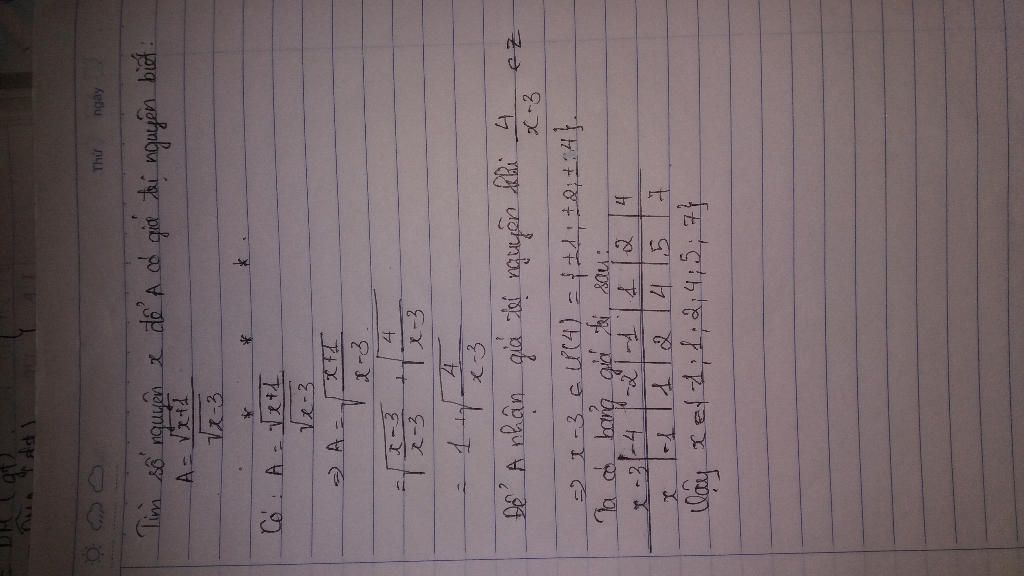 Thứ ngày
Tìm số nguyên x để A có giá trị nguyên biết:
A = √x+1 / √x-3
* * *
Có: A = √x+1 / √x-3
⇒ A = √(x+1 / x-3)
= √(x-3 / x-3) + √(4 / x-3)
= 1 + √(4 / x-3)
Để A nhận giá trị nguyên khi 4 / x-3 ∈ Z
⇒ x-3 ∈ Ư(4) = {±1; ±2; ±4}.
Ta có bảng giá trị sau:
x-3 | -4 | -2 | -1 | 1 | 2 | 4
x | -1 | 1 | 2 | 4 | 5 | 7
Vậy x ∈ {-1; 1; 2; 4; 5; 7}